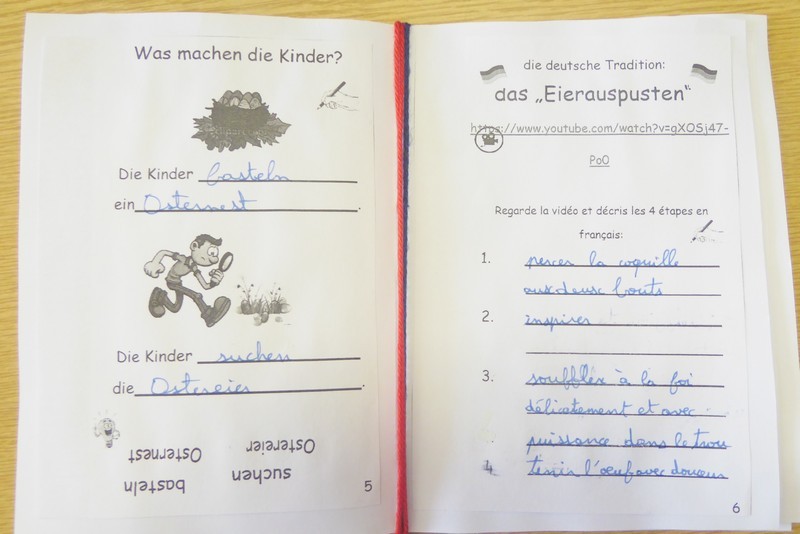 Was machen die Kinder?
Die Kinder basteln
ein Osternest.
Die Kinder suchen
die Ostereier.
Osternest
Ostereier
basteln
suchen
5
die deutsche Tradition:
das „Eierauspusten“
https://www.youtube.com/watch?v=gXOSj47-
Po0
Regarde la vidéo et décris les 4 étapes en
français:
1. percer la coquille
aux deux bouts
2. inspirer
3. souffler à la foi
délicatement et avec
puissance dans le trou
4 tenir l'œuf avec douceur
6